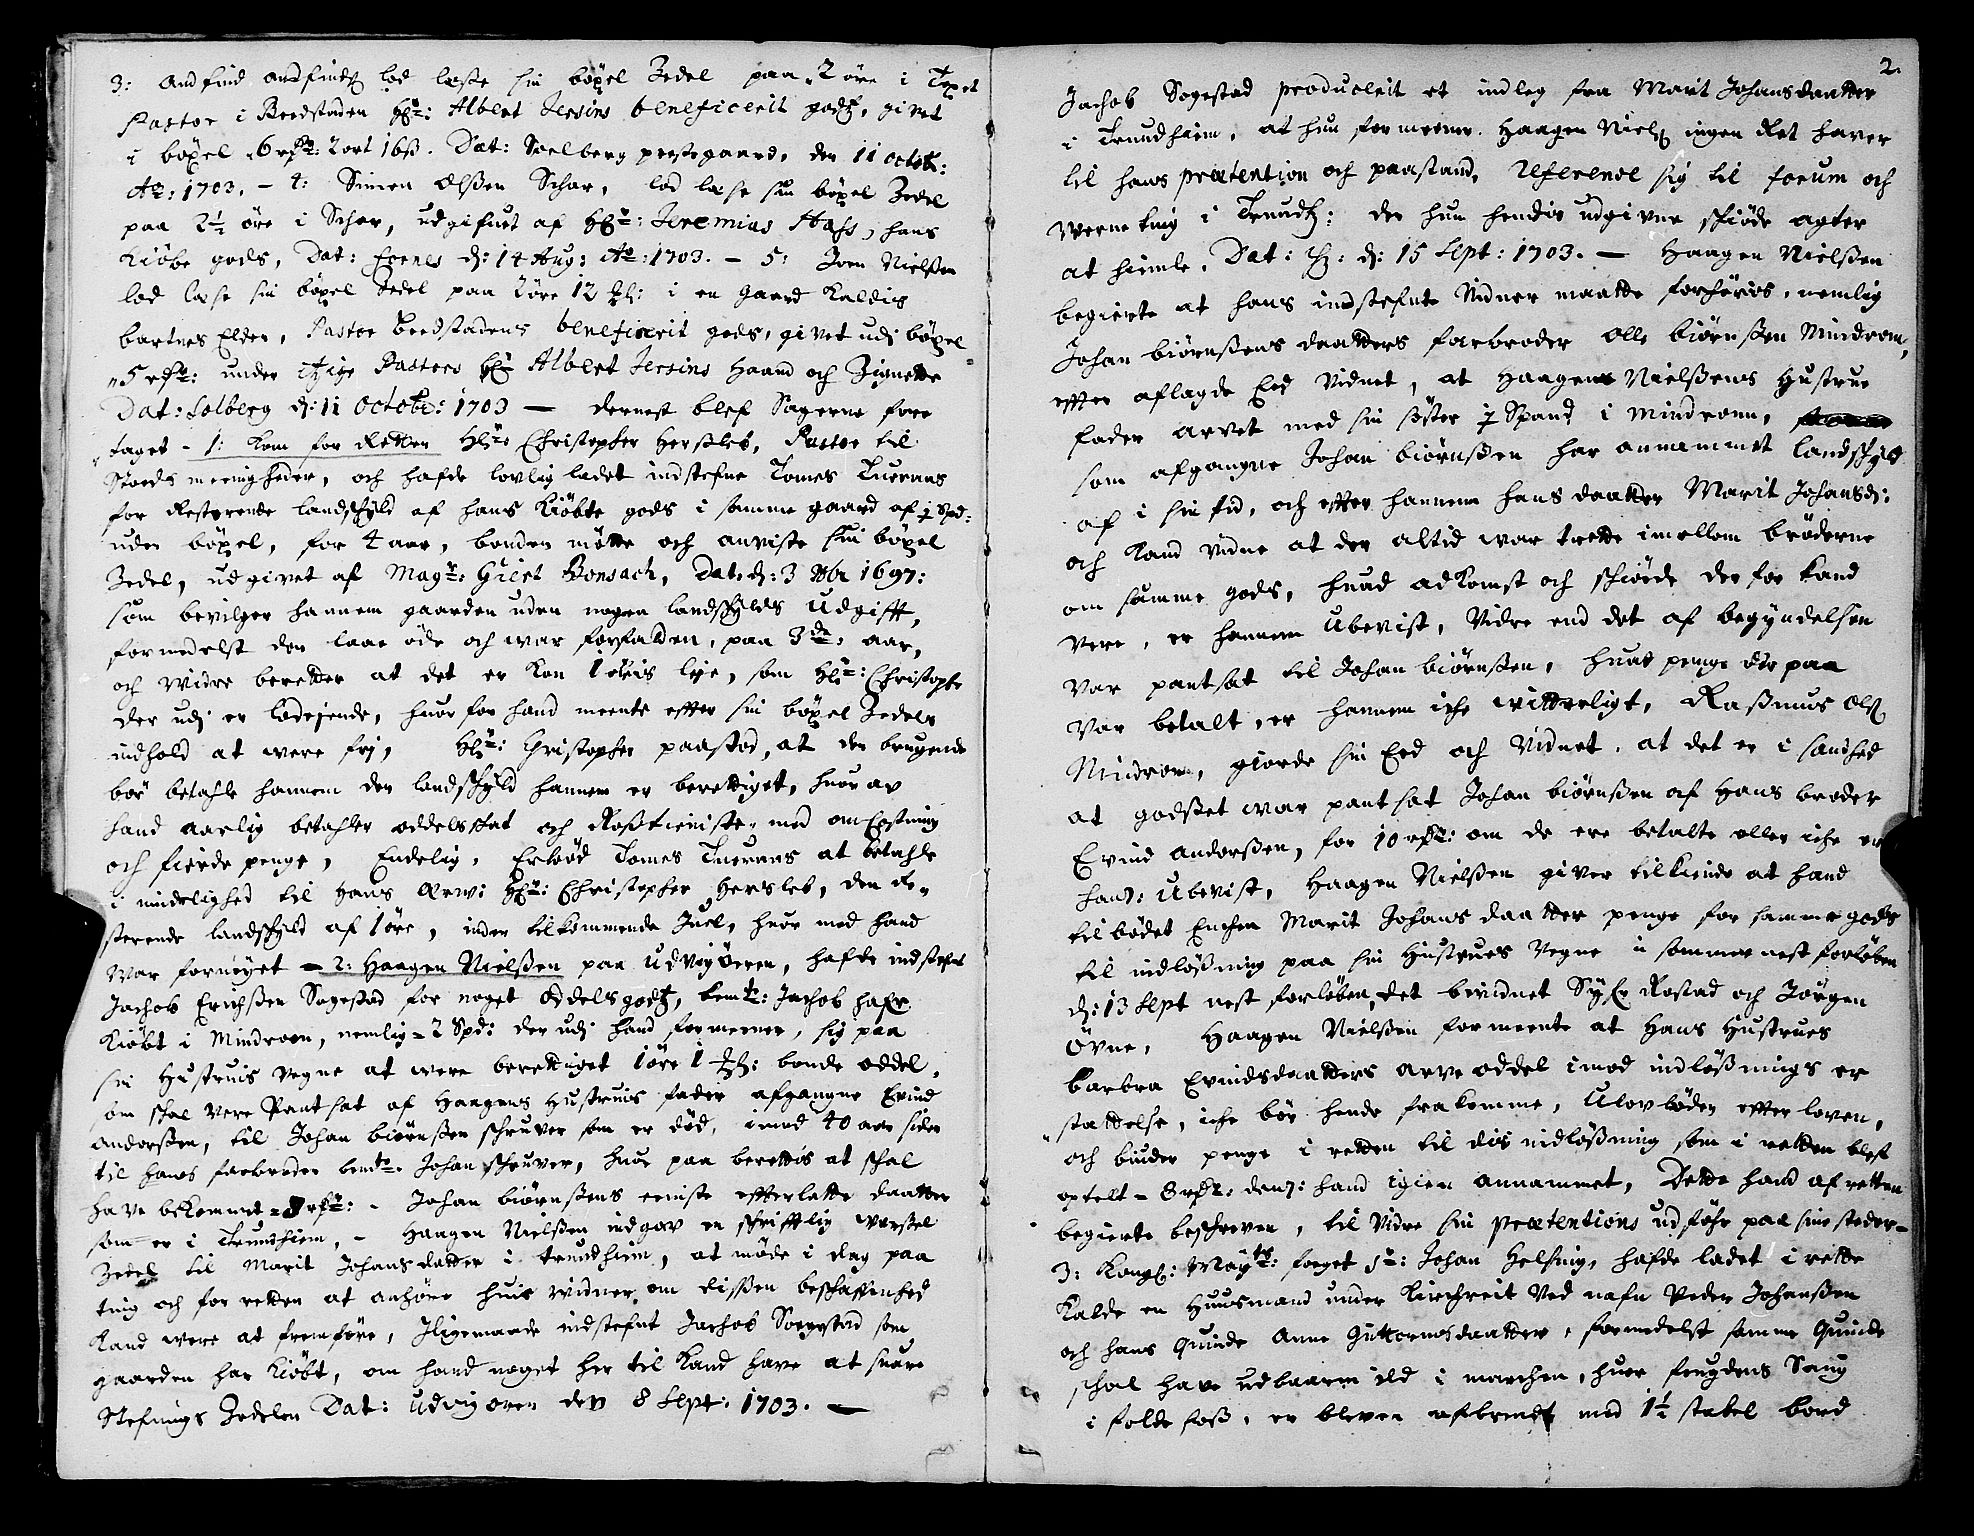 3: Andfind Andfinds: lod læse sin böxel Zedel paa 2 öre i
Pastor i Beedstaden Hr: Albert Jersins beneficerit godtz, givet
i böxel 6 rdr: 2 ort 16 ß. Dat: Soelberg prestegaard, den 11 octob:
Ao: 1703. - 4: Simen Olßen Schar, lod læse sin böxel Zedel
paa 2½ öre i Schar, udgifuet af Hr: Jeremias Hass, hans
Kiöbe gods, Dat: Eenes d: 14 Aug: Ao: 1703. - 5: Joen Nielßen
lod læse sin böxel Zedel paa 2 öre 12 i en gaard Kaldis
bartnes Elden, Pastor beedstadens beneficerit gods, givet udj böxel
5 rdr: under Pastors Hr Albert Jersins Haand og Zignette
Dat: Solberg d: 11 Octobr: 1703 — dernest blef Sagerne fore
taget - 1: kom for Retten Hr: Christopher Hersleb, Pastor til
meenigheder, och hafde lovlig ladet indstefne Tomes Tueraas
for Resterende landschyld af hans Kiöbte gods i samme gaard af ½ Spd:
uden böxel, for 4 aar, bonden mötte och anviste sin böxel
Zedel, udgivet af Magr: Giert Bonsach, Dat: d: 3 1697:
som bevilger hannem gaarden uden nogen landschylds udgifft,
formedelst den laae öde och war forfalden, paa 3de: aar,
och widre beretter at det er kon 1 leje, som Hr: Christopher
der udj er lodejende, huor for hand meente effter sin böxel Zedels
indhold at were frj, Hr: Christopher paastod, at den brugende
bör betahle hannem den landschyld hannem er berettiget, huor av
hand aarlig betahler oddelsschat och Roßtieniste, med omkostning
och fierde penge, Endelig, Erböd Tomes Tueraas at betahle
i mindelighed til Hans Hr: Christopher Hersleb, den Re
sterende landschyld af 1 öre, inden tilkommende Juel, huor med hand
war fornöyet - 2: Haagen Nielßen paa Udvigöeren, hafde indstefnt
Jachob Erichßen Sogestad for noget Oddelsgodtz, bemte: Jachob hafr
Kiöbt i Mindroen, nemlig = 2 Spd: der udj hand formeener, sig paa
sin Hustruis vegne at were berettiget 1 öre 1 bonde oddel,
om schal vere Pantsat af Haagens Hustruis fader afgangne Evind
Andersßen, til Johan biörnßen schriver som er död, imod 40 aar siden
til hans farbroder bemte: Johan schriver, huor paa berettis at schal
have bekommet = 8 rdr: - Johan biörnßens eeniste efterlatte daatter
som er i Trundhiem, - Haagen Nielßen indgav en schrifftlig warßel
Zedel til Marit Johansdatter i trundhiem, at möde i dag paa
ting och for retten at anhöre huis widner om dißen beschaffenhed
Kand were at fremföre, Iligemaade indstefnt Jachob Soegstad som
gaarden har kiöbt, om hand noget her til kand have at suare
Stefnings Zedelen Dat: Udvigören den 8 Sept: 1703. —
2.
Jachob Sogestad producerit et indleg fra Marit Johansdaatter
i Trundhiem, at hun formeener Haagen Niels: ingen Ret haver
til hans prætention och paastand, Referende sig til forum och
werneting i Trundh: der hun hendis udgivne schiöde agter
at hiemle, Dat: d: 15 Sept: 1703. — Haagen Nielßen
begierte at hans indstefnte Vidner maatte forhöris, nemlig
Johan biörnßens daatters farbroder Olle biörnßen Mindroen,
effter aflagde Eed vidnet, at Haagens Nielßens Hustrue
fader arvet med sin söster ½ Spand i Mindroen,
som afgangne Johan biörnßen har annammet landschyld
af i sin tid, och effter hannem hans daatter Marit Johansd:
och kand vidne at der altid war trette imellom bröderne
om samme gods, huad adkomst och schiöde der for kand
vere, er hannem Ubevist, Vidre end det af begyndelsen
var pantsat til Johan biörnßen, huad penge der paa
var betalt, er hannem iche vitterligt, Raßmus Ols:
Mindroen, giorde sin Eed och Vidnet, at det er i sandhed
at godset war pantsat Johan biörnßen af Hans broder
Evind Andorßen, for 10 rdr: om de ere betalte eller iche er
hand: Ubevist, Haagen Nielßen giver tilkiende at hand
tilbödet Enchen Marit Johansdaatter penge for samme gods
til indlößning paa sin Hustrues vegne i sommer nest forleben
d: 13 Sept nest forleben, det bevidnet Rostad och Jörgen
Övne, Haagen Nielßen formeente at Hans Hustrues
barbra Evindsdaatters arve oddel imod indlößnings er
stattelse, iche bör hende frakomme, Ulovböden effter loven,
och biuder penge i retten til dis indlößning som i retten blef
optelt = 8 rdr: hand igien annammet, Dette hand af retten
begierte beschreven, til Vidre sin prætentions udföhr paa sine steder —
3: Kongl: Mayts: foget Sr: Johan Helsing, hafde ladet i rette
Kalde en Huusmand under Kirchreit ved nafn Peder Johanßen
och hans Quinde Anne Guttormsdaatter, formedelst samme Quinde
schal have udbaaren ild i marchen, huor fougdens Saug
i folde foß, er bleven afbrendt med 1½ stabel bord